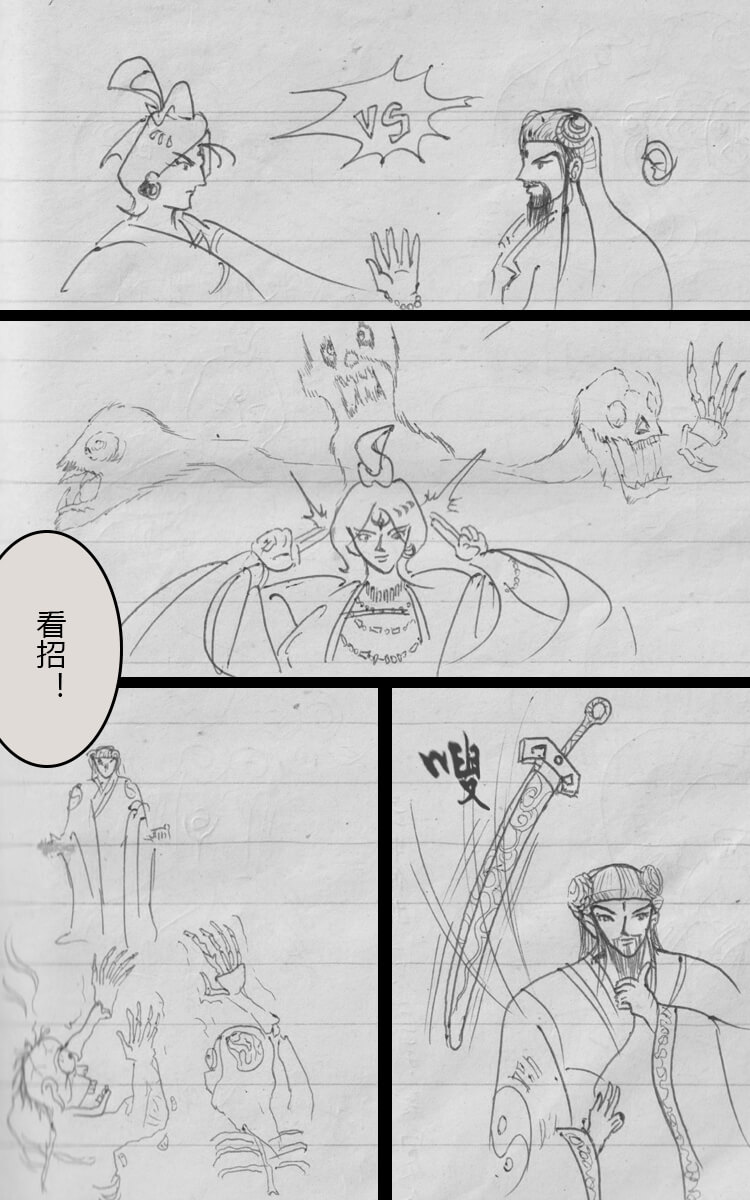 VS
看招！
嗖